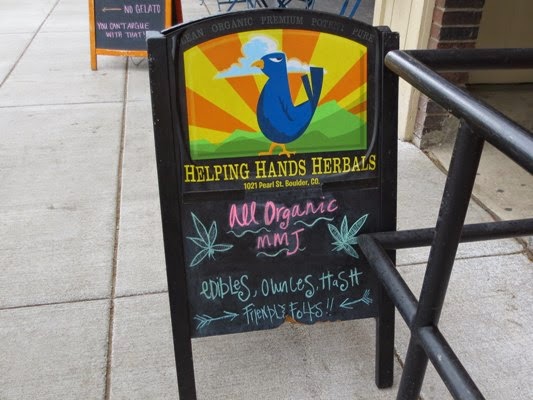 ← NO GELATO
YOU CAN'T ARGUE
WITH THAT!
ORGANIC PREMIUM POTENT PURE
HELPING HANDS HERBALS
1021 Pearl St. Boulder, CO.
All Organic
MMJ
edibles, Ounces, Hash
Friendly Folks!!